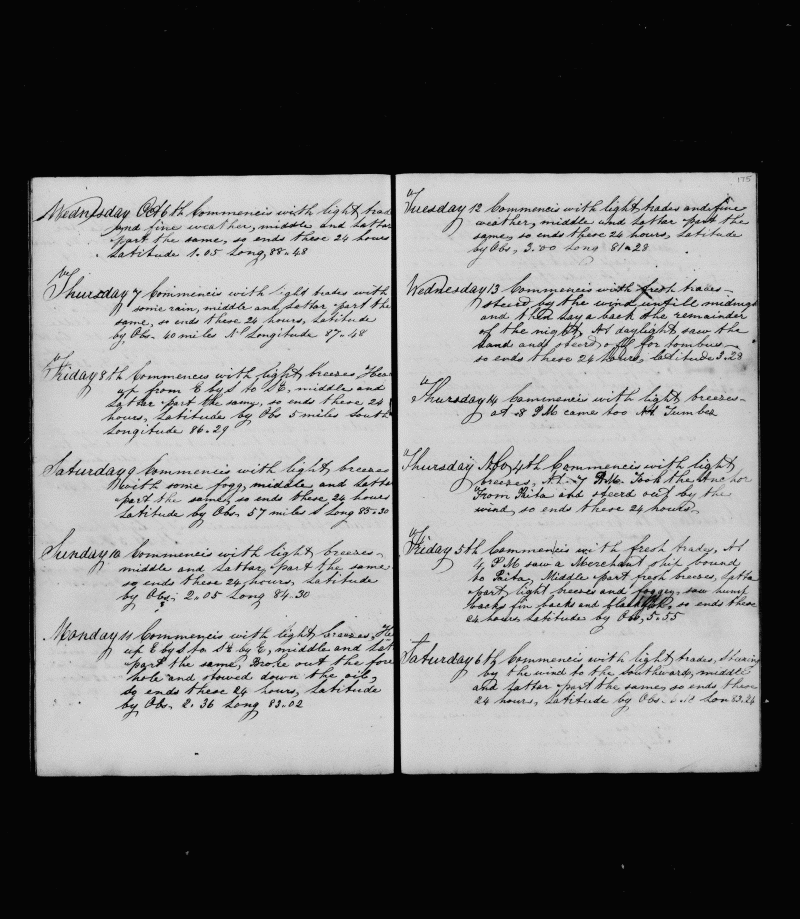 Wednesday Oct 6th Commencis with light trad
and fine weather, middle and lattar
part the same, so ends these 24 hours
Latitude 1.05 Long, 88.48
Thursday 7 Commencis with light trades with
some rain, middle and lattar part the
same, so ends these 24 hours, Latitude
by Obs. 40 miles N Longitude 87.48
Friday 8th Commencis with light breezes Hea
up from E by S to SE, middle and
lattar part the same, so ends these 24
hours, Latitude by Obs 5 miles South
Longitude 86.29
Saturday 9 Commencis with light breezes
with some fogg, middle and latta
part the same, so ends these 24 hours
Latitude by Obs. 57 miles S Long 85.30
Sunday 10 Commencis with light breezes
middle and lattar part the same
so ends these 24 hours, Latitude
by Obs. 2.05 Long 84.30
Monday 11 Commencis with light breezes, Hea
up E by S to SE by E, middle and lat
part the same, Broke out the fore
hole and stowed down the oil,
so ends these 24 hours, Latitude
by Obs. 2.36 Long 83.02
175
Tuesday 12 Commencis with light trades and fine
weather, middle and lattar part the
same, so ends these 24 hours, Latitude
by Obs, 3.00 Long 81.28
Wednesday 13 Commencis with fresh trades
steerd by the wind untill midnig
and then lay aback the remainder
of the night, At daylight saw the
land and steerd off for tombus
so ends these 24 hours, Latitude 3.23
Thursday 14 Commencis with light breezes
at 8 PM came too At Tumbez
Thursday Nov 4th Commencis with light
breezes, At 7 PM. Took the Anchor
from Paita and steerd out by the
wind, so ends these 24 hours.
Friday 5th Commencis with fresh trades, At
4 PM saw a Merchant ship bound
to Paita, Middle part fresh breezes, latta
part light breezes and foggy, saw hump
backs fin backs and blackfish, so ends these
24 hours, Latitude by Obs, 5.55
Saturday 6th Commencis with light trades, Stearing
by the wind to the Southward, middle
and lattar part the same, so ends these
24 hours, Latitude by Obs. Lon 83.24